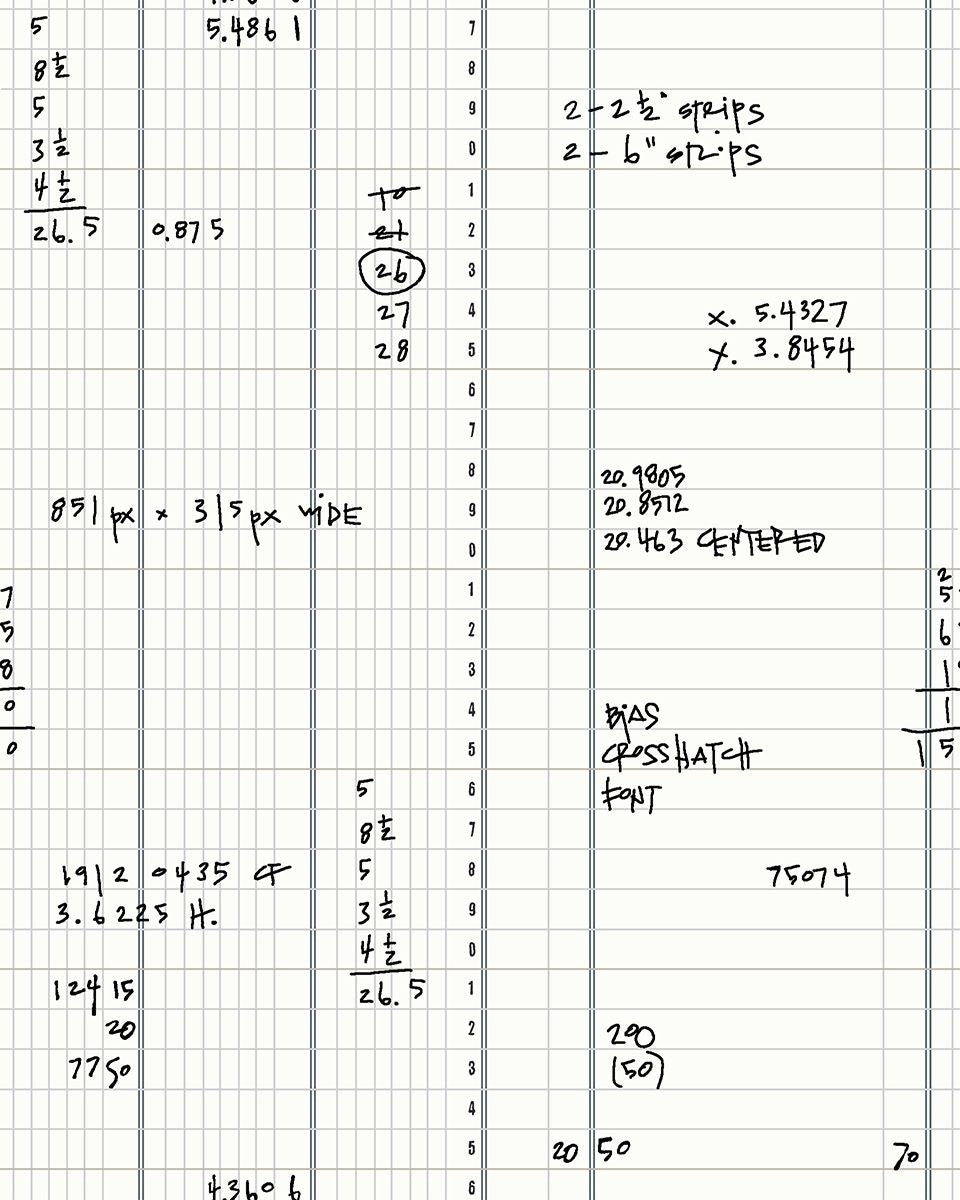 5
5.4861
7
8 1/2
8
5
9
3 1/2
0
4 1/2
1
26.5
0.875
2
26
3
27
4
28
5
6
7
8
851 px x 315 px WIDE
9
0
7
1
5
2
8
3
0
4
0
5
5
6
8 1/2
7
19120435 CF
5
8
3.6225 H.
3 1/2
9
4 1/2
0
12415
26.5
1
20
2
7750
3
4
5
4.3606
6
2 - 2 1/2" strips
2 - 6" strips
x. 5.4327
y. 3.8454
20.9805
20.8512
20.463 CENTERED
BIAS
CROSSHATCH
FONT
75074
200
(50)
20 50
70
2
5
6
1
1
15